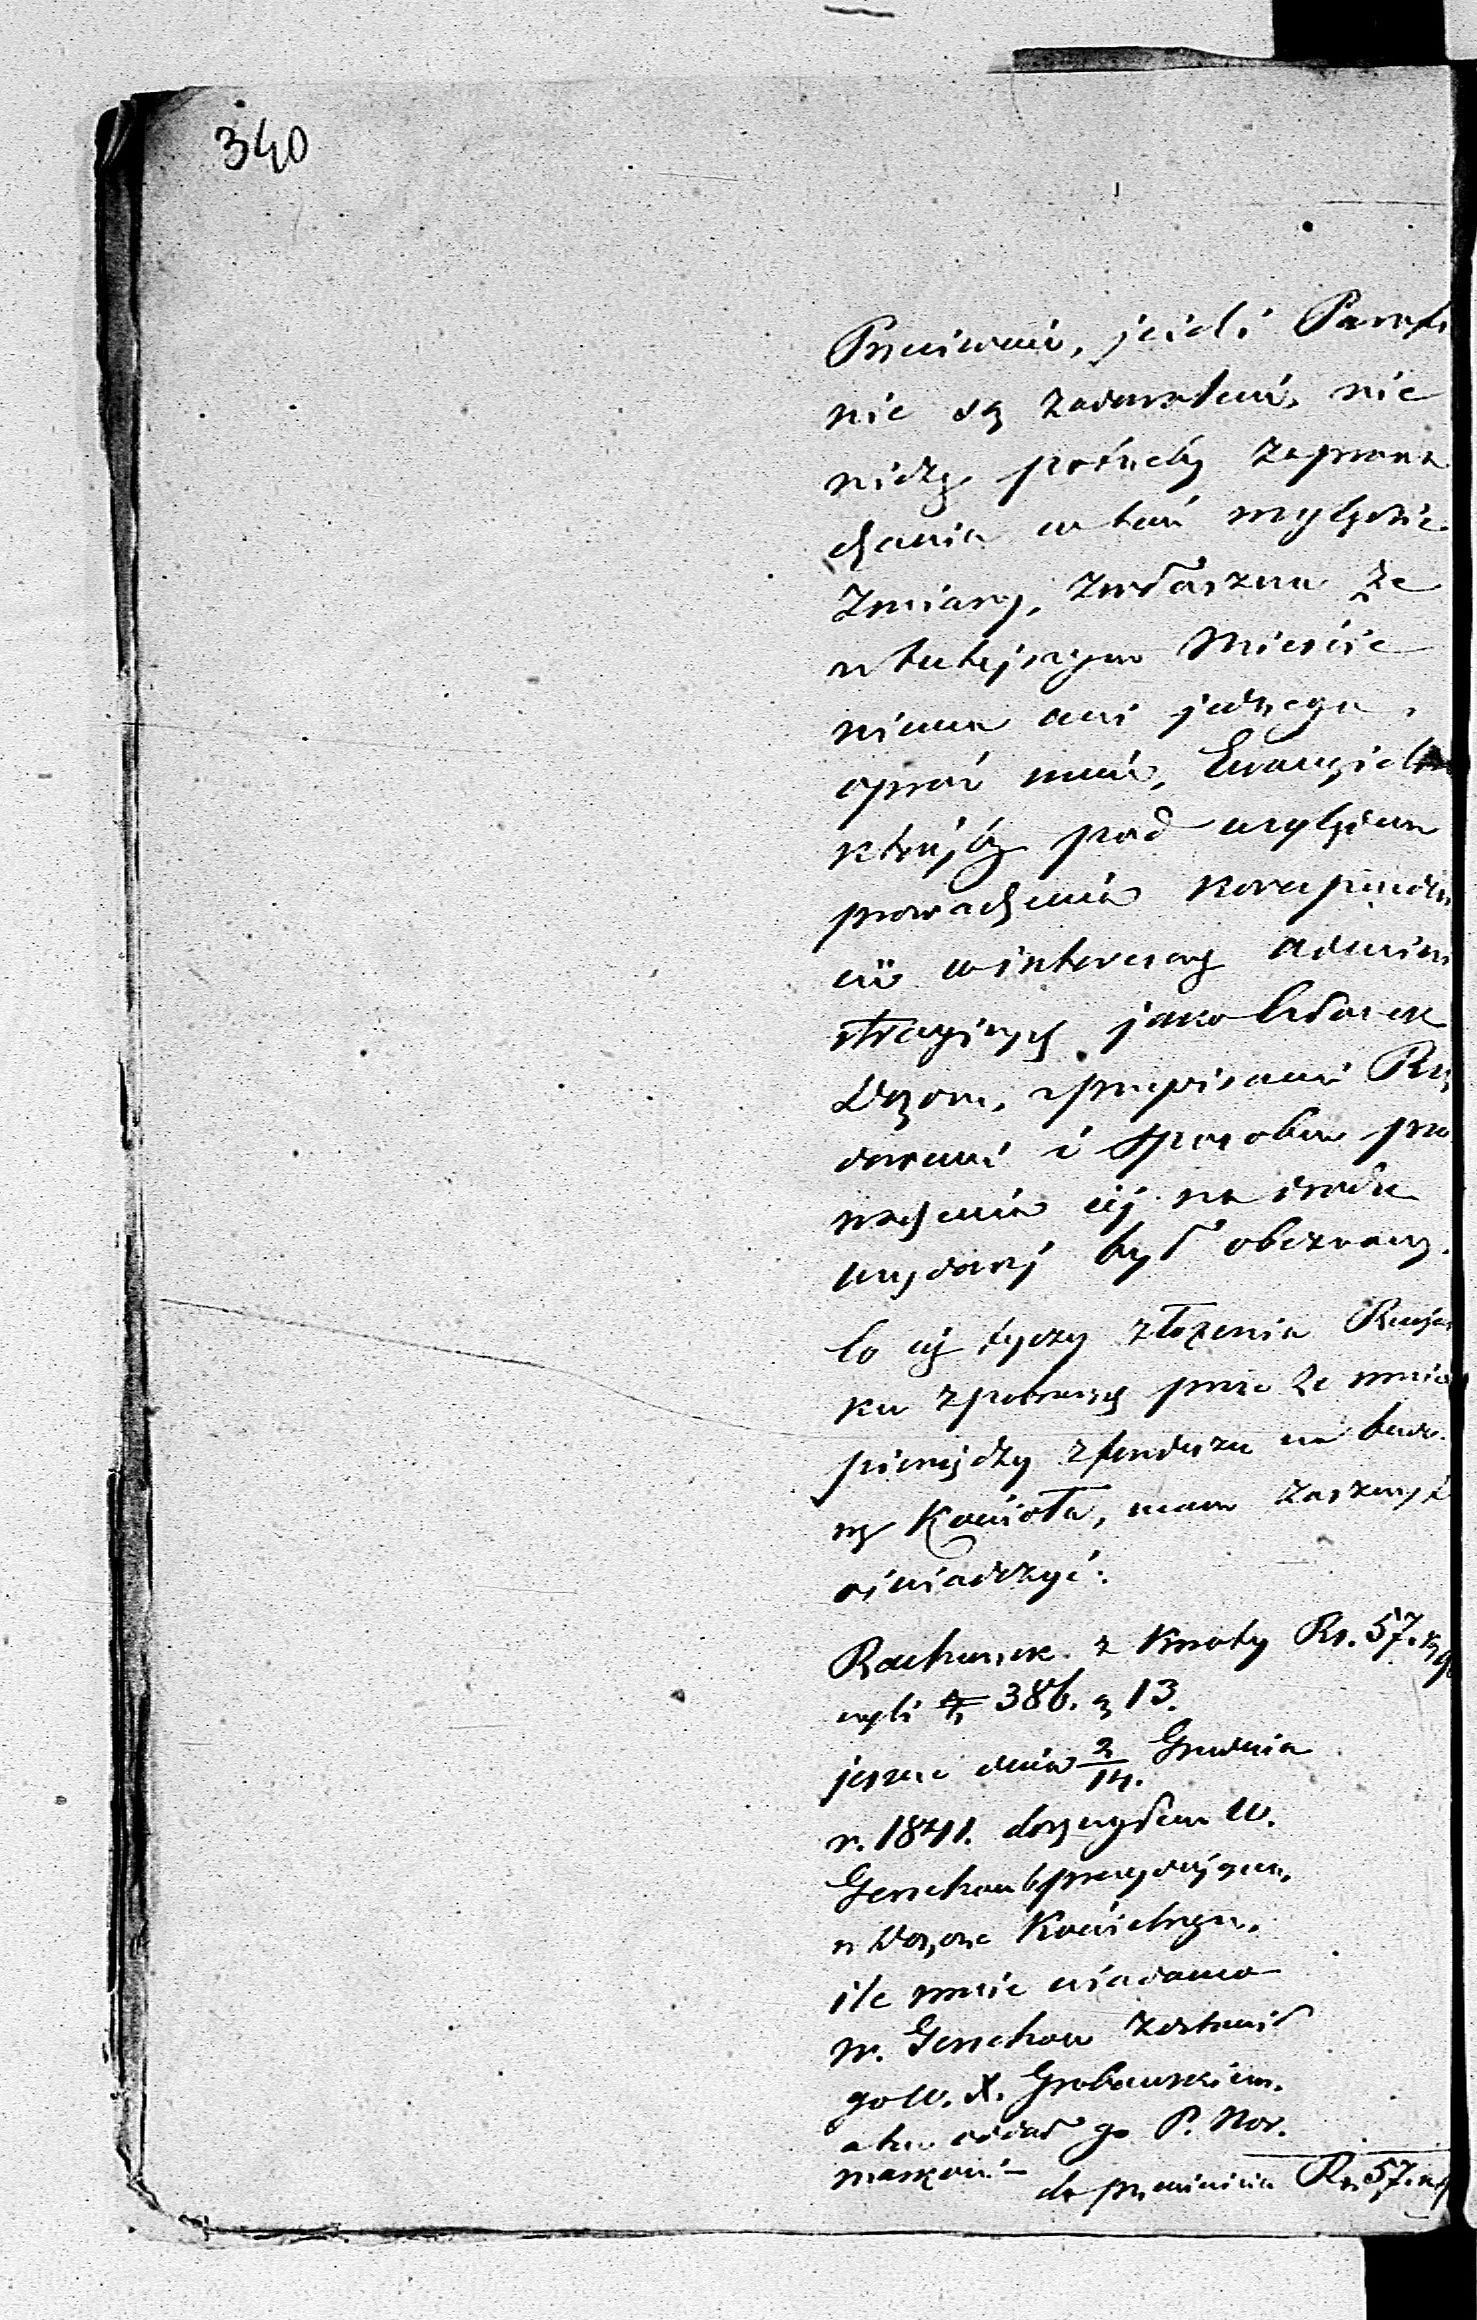 340
Przeciwnie, jeżeli Parafi
nie są zadowoleni, nie
widzę potrzeby zaprowa
dzania w tem względzie
Zmiany, zwłaszcza że
w tutejszym Mieście
niema ani jednego,
oprócz mnie, Ewangielika
któryby pod względem
prowadzenia korespondén
cii w interesach admini
stracyjnych jako Członek
Dozoru, z przepisami Rzą
dowemi i sposobem pro
wadzenia ich na drodze
urzędowéj był obeznany.
Co się tyczy złożenia Rachun
ku z pobranych przeze mnie
pieniędzy z funduszu na budo
wę Kościoła, mam zaszczyt
oświadczyć:
Rachunek z Kwoty Rs. 57. k. 9
czyli 386. g 13.
jeszcze dnia 2/14. Grudnia
r. 1841. doręczyłem W.
Gerschow prezydującemu
w Dozorze Kościelnym.
ile mnie wiadomo
W. Gerschow zostawił
go W. X. Grabowskiemu
a ten oddał go P. Nor.
markowi
do przeniesienia Rs. 57. k. 9